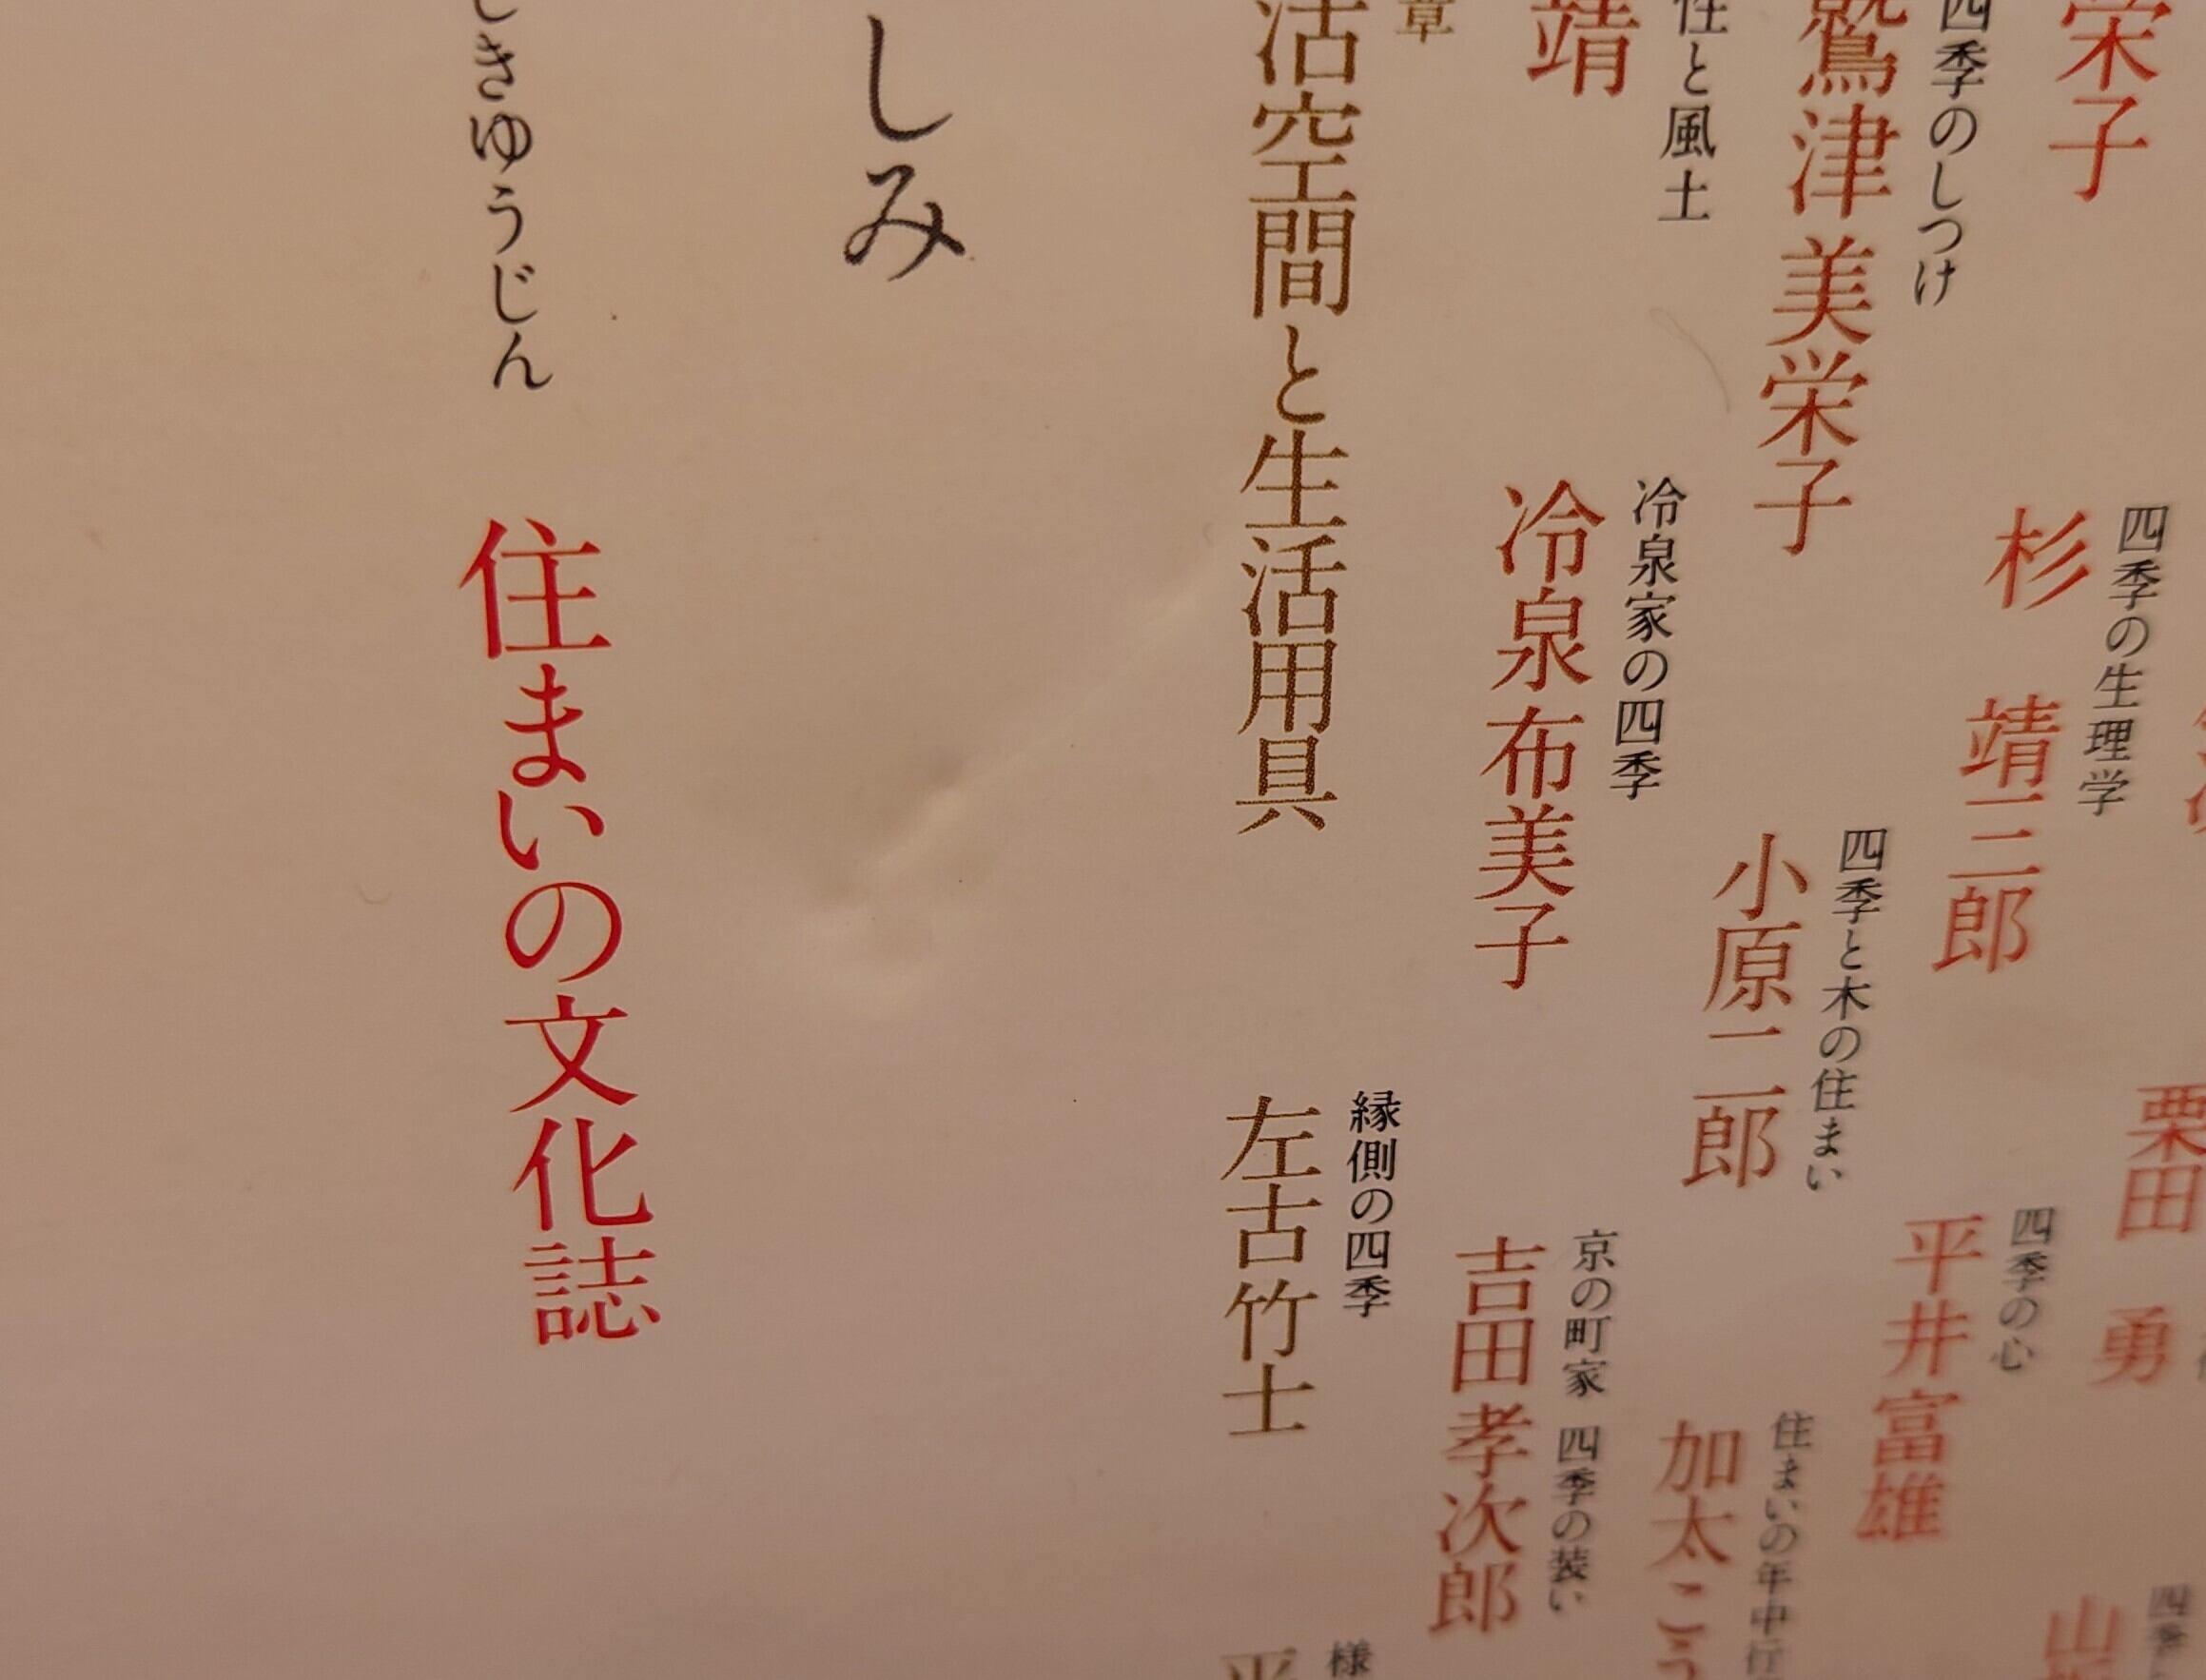 栄子
栗田 勇
四季の生理学
杉 靖三郎
四季の心
平井富雄
四季のしつけ
鷲津美栄子
四季と木の住まい
小原二郎
住まいの年中行
加太こう
性と風土
靖
冷泉家の四季
冷泉布美子
京の町家 四季の装い
吉田孝次郎
章
活空間と生活用具
縁側の四季
左古竹士
様
しみ
しきゆうじん
住まいの文化誌